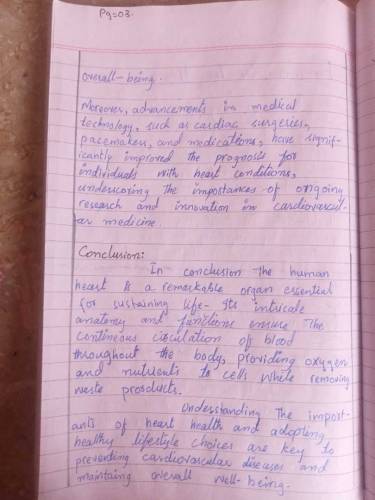 Pg=03.
overall-being.
Moreover, advancements in medical
technology, such as cardiac surgeries,
pacemakers, and medications, have signif-
icantly improved the prognosis for
individuals with heart conditions,
underscoring the importances of ongoing
research and innovation in cardiovascul-
ar medicine.
Conclusion:
In conclusion the human
heart is a remarkable organ essential
for sustaining life. Its intricate
anatomy and functions ensure the
continuous circulation of blood
throughout the body, providing oxygen
and nutrients to cells while removing
waste products.
Understanding the import-
ants of heart health and adopting
healthy lifestyle choices are key to
preventing cardiovascular diseases and
maintaing overall well-being.